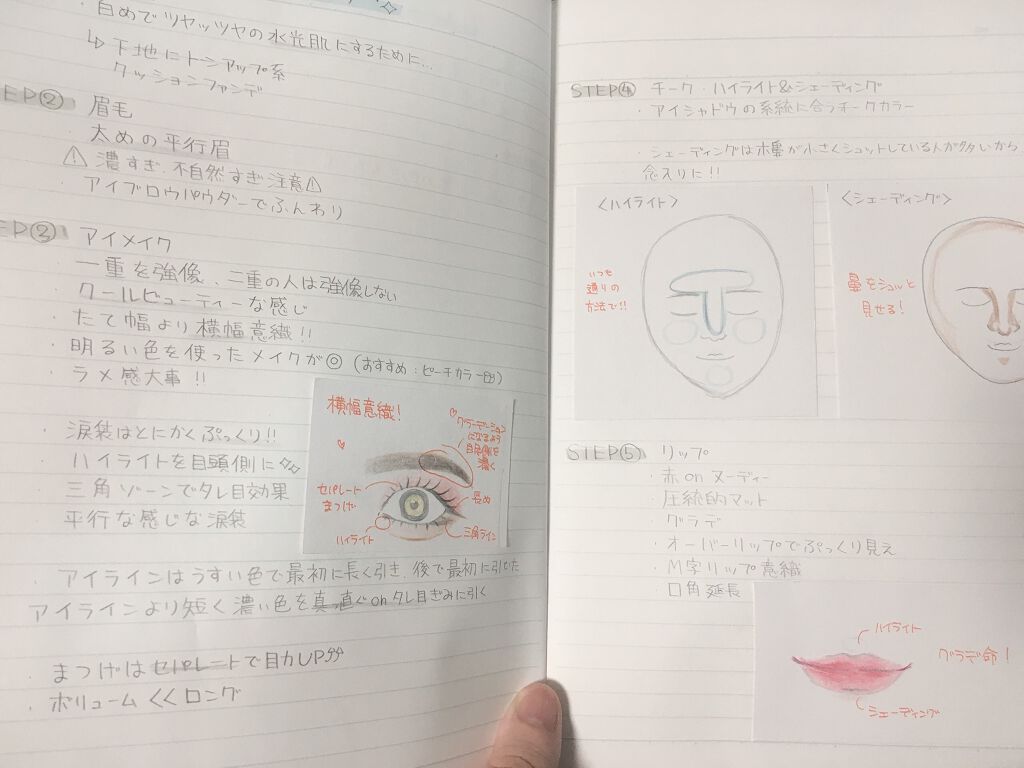 ・白めでツヤッツヤの水光肌にするために…
↳下地にトーンアップ系
クッションファンデ
EP② 眉毛
太めの平行眉
⚠濃すぎ・不自然すぎ注意⚠
・アイブロウパウダーでふんわり
EP③ アイメイク
・一重を強像、二重の人は強像しない
・クールビューティーな感じ
・たて幅より横幅意織!!
・明るい色を使ったメイクが◎(おすすめ:ピーチカラー)
・ラメ感大事!!
・涙袋はとにかくぷっくり!!
・ハイライトを目頭側に
・三角ゾーンでタレ目効果
・平行な感じな涙袋
横幅意織!
グラデーション
になるよう
目尻側を
濃く
セパレート
まつげ
長め
ハイライト
三角ライン
・アイラインはうすい色で最初に長く引き、後で最初に引いた
アイラインより短く濃い色を真っ直ぐonタレ目ぎみに引く
・まつげはセパレートで目力UP
・ボリューム<<ロング
STEP④ チーク・ハイライト&シェーディング
・アイシャドウの系統に合うチークカラー
・シェーディングは鼻が小さくシュッとしている人が多いから
念入りに!!
〈ハイライト〉
いつも
通りの
方法で!!
〈シェーディング〉
鼻をシュッと
見せる!
STEP⑤ リップ
・赤onヌーディー
・圧統的マット
・グラデ
・オーバーリップでぷっくり見え
・M字リップ意織
・口角延長
ハイライト
グラデ命!
シェーディング